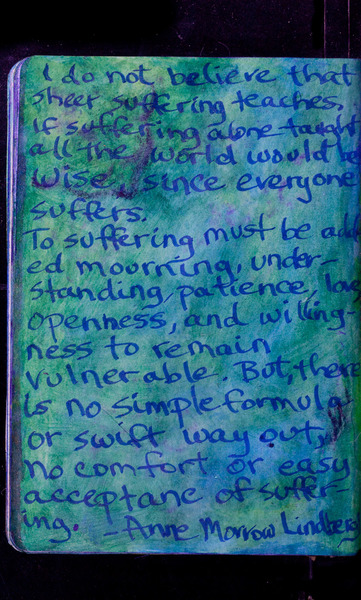 I do not believe that
sheer suffering teaches.
If suffering alone taught
all the world would be
wise, since everyone
suffers.
To suffering must be add
ed mourning, under-
standing, patience, love
openness, and willing-
ness to remain
vulnerable. But, there
is no simple formula
or swift way out,
no comfort or easy
acceptane of suffer-
ing. - Anne Morrow Lindberg